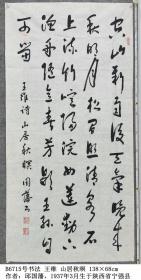 空山新雨後天氣晚來
秋明月松間照清泉石
上流竹喧歸浣女蓮動下
漁舟隨意春芳歇王孫自
可留
王維詩山居秋暝 國藩書
B6715号书法 王维 山居秋暝 138×68cm
作者：邱国藩，1937年3月生于陕西省宁强县